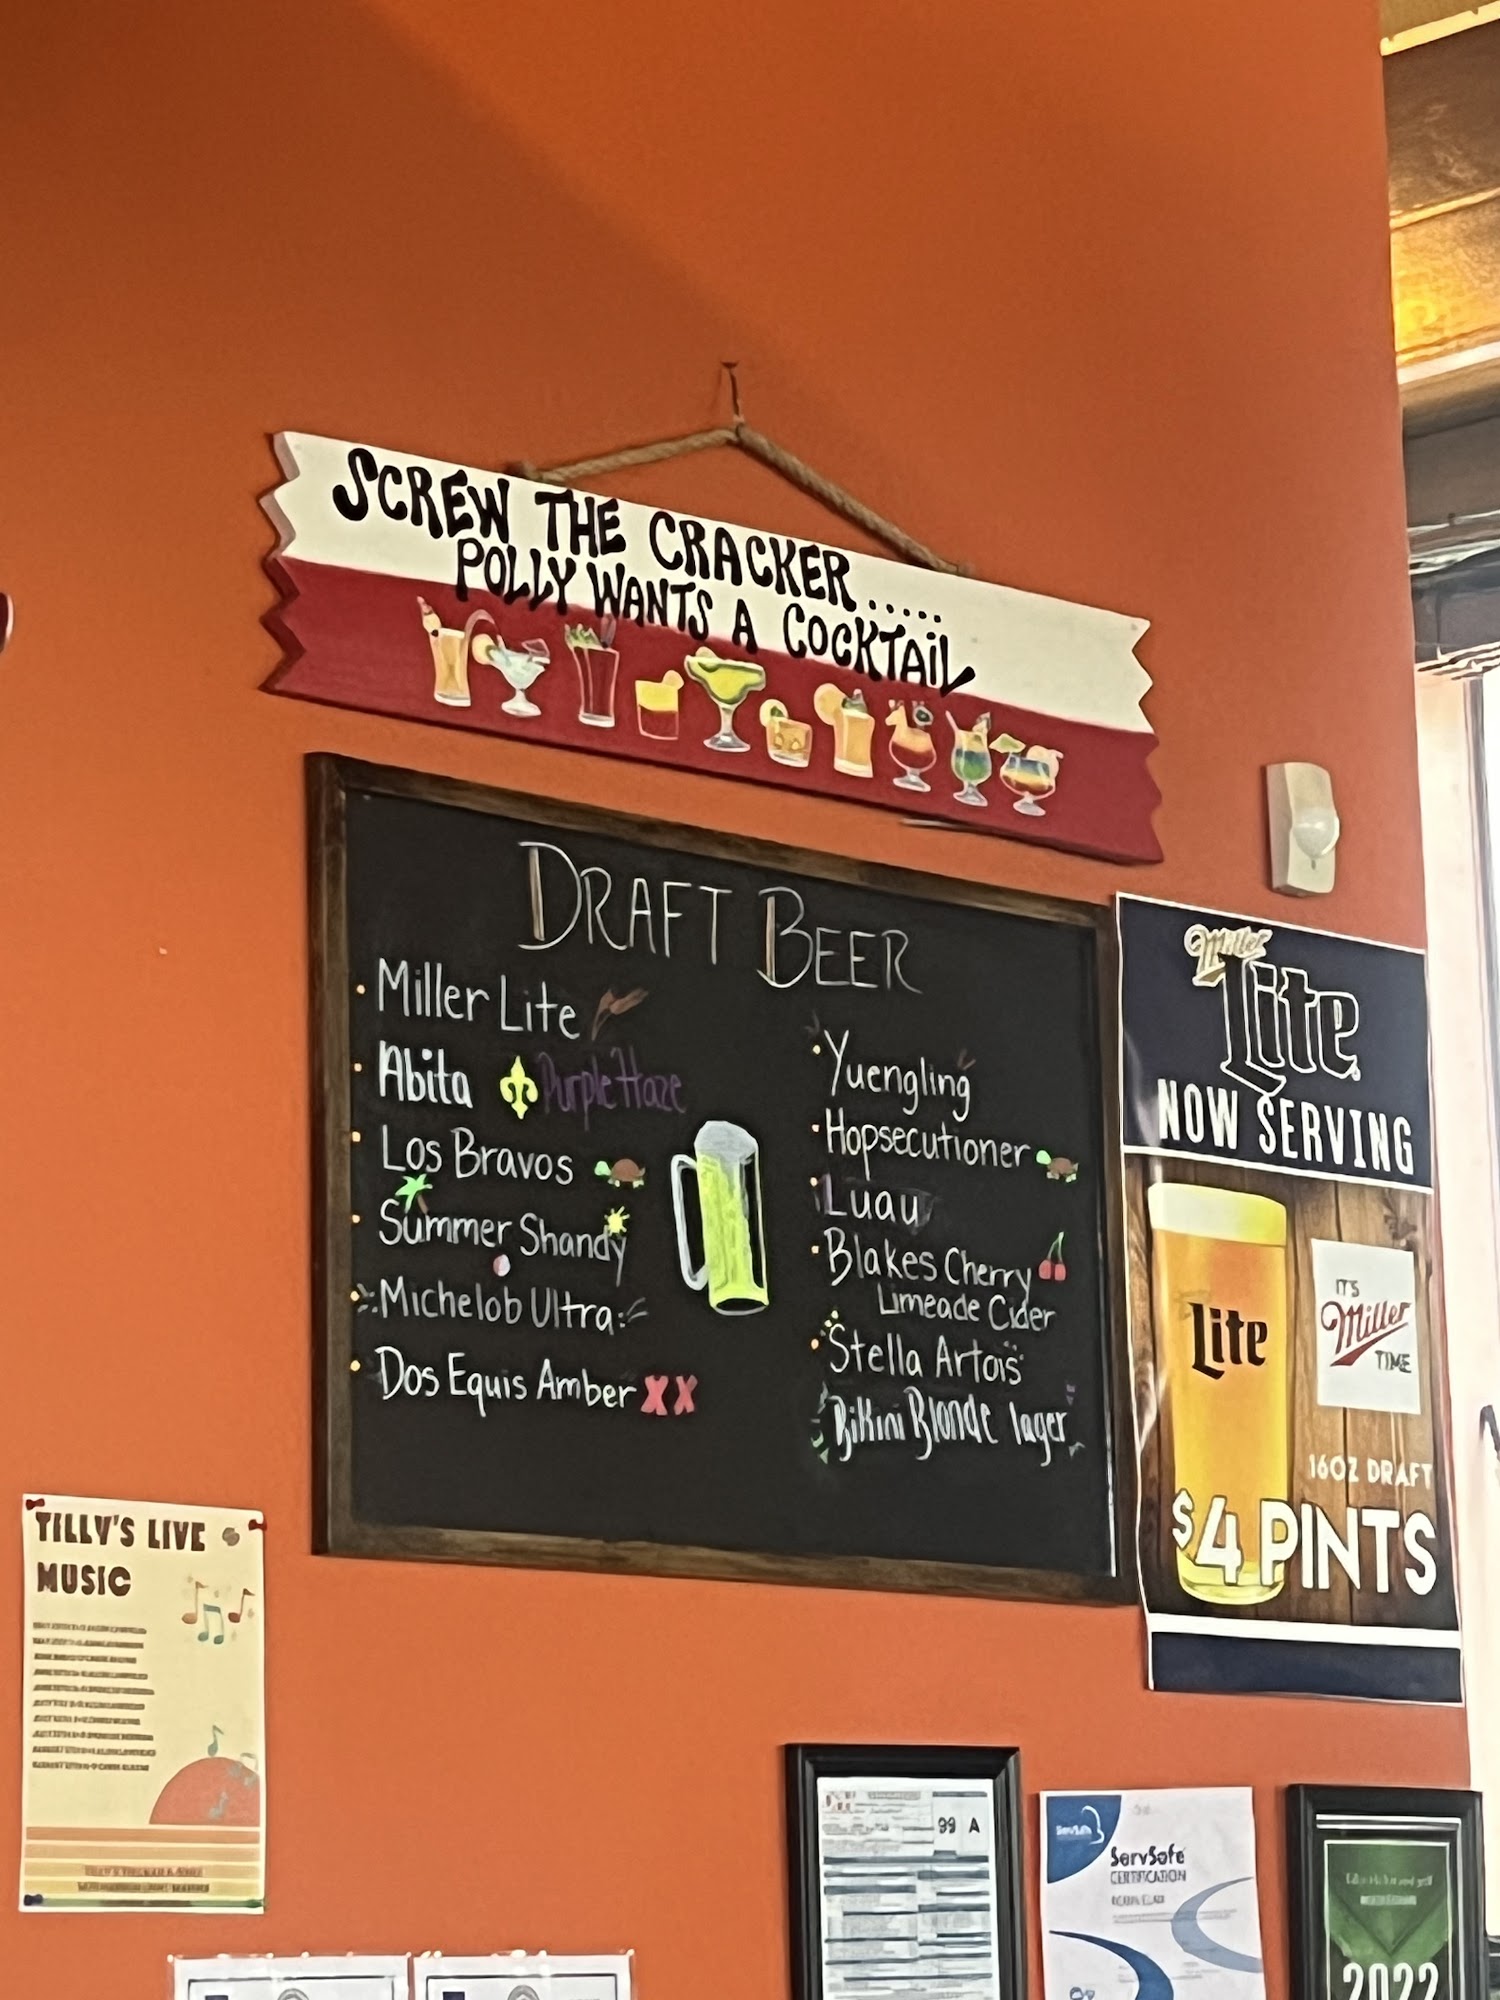 SCREW THE CRACKER.....
POLLY WANTS A COCKTAIL
DRAFT BEER
Miller Lite
Abita Purple Haze
Los Bravos
Summer Shandy
Michelob Ultra
Dos Equis Amber XX
Yuengling
Hopsecutioner
Luau
Blakes Cherry
Limeade Cider
Stella Artois
Bikini Blonde lager
Miller
Lite
NOW SERVING
Lite
IT'S
Miller
TIME
16OZ DRAFT
$4 PINTS
TILLY'S LIVE
MUSIC
99 A
ServSafe
ServSafe
CERTIFICATION
2022